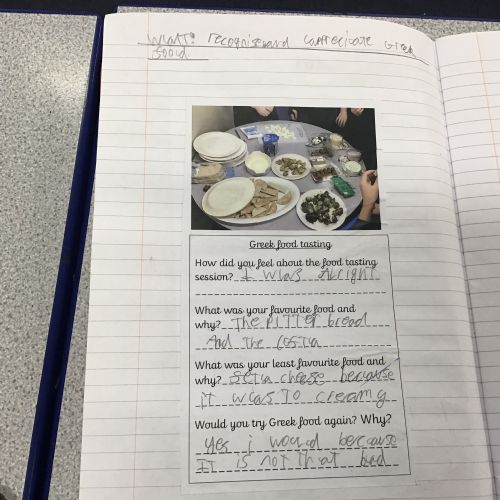 WALT: recognise and apprecitate Greek
food
Greek food tasting
How did you feel about the food tasting
session? I was Alright
What was your favourite food and
why? The PITTER bread
And the
What was your least favourite food and
why? Feta cheese because
it was To creamy
Would you try Greek food again? Why?
yes i would because
IT is not that bad